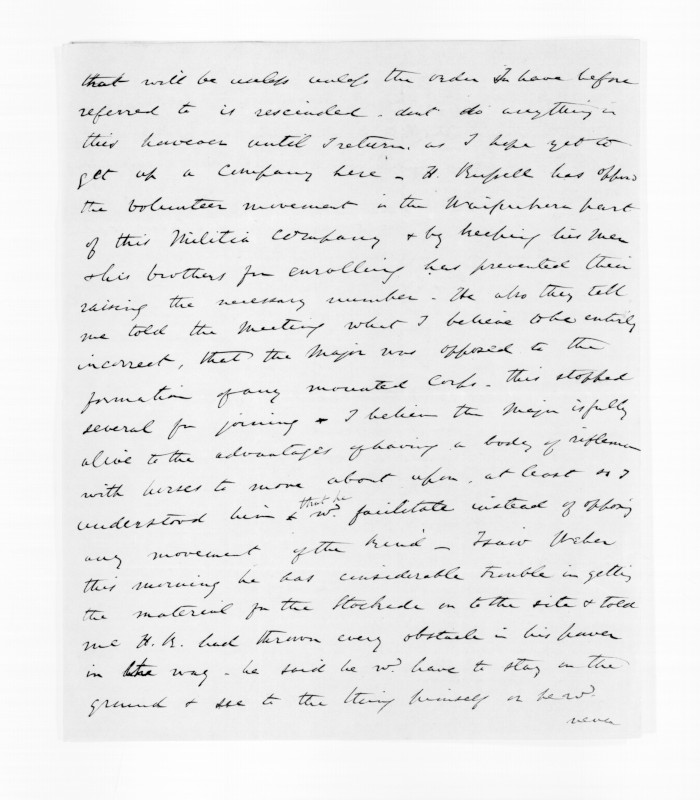 that will be useless unless the order I have before
referred to is rescinded. dont do anything in
this however until I return. as I hope yet to
get up a company here - H. Russell has opposed
the volunteer movement in the Waipukura part
of this Militia Company & by keeping his men
& his brothers fm enrolling has prevented their
raising the necessary number - He also they tell
me told the Meeting what I believe to be entirely
incorrect, that the Major was opposed to the
formation of any mounted Corps - this stopped
several fm joining & I believe the Major is fully
alive to the advantages of having a body of riflemen
with horses to move about upon, at least as I
understood him & that he wd. facilitate instead of opposing
any movement of the kind - I saw Weber
this morning he has considerable trouble in getting
the material for the Stockade on to the site & told
me H. R. had thrown every obstacle in his power
in the way - he said he wd. have to stay on the
ground & see to the thing himself or he wd.
never